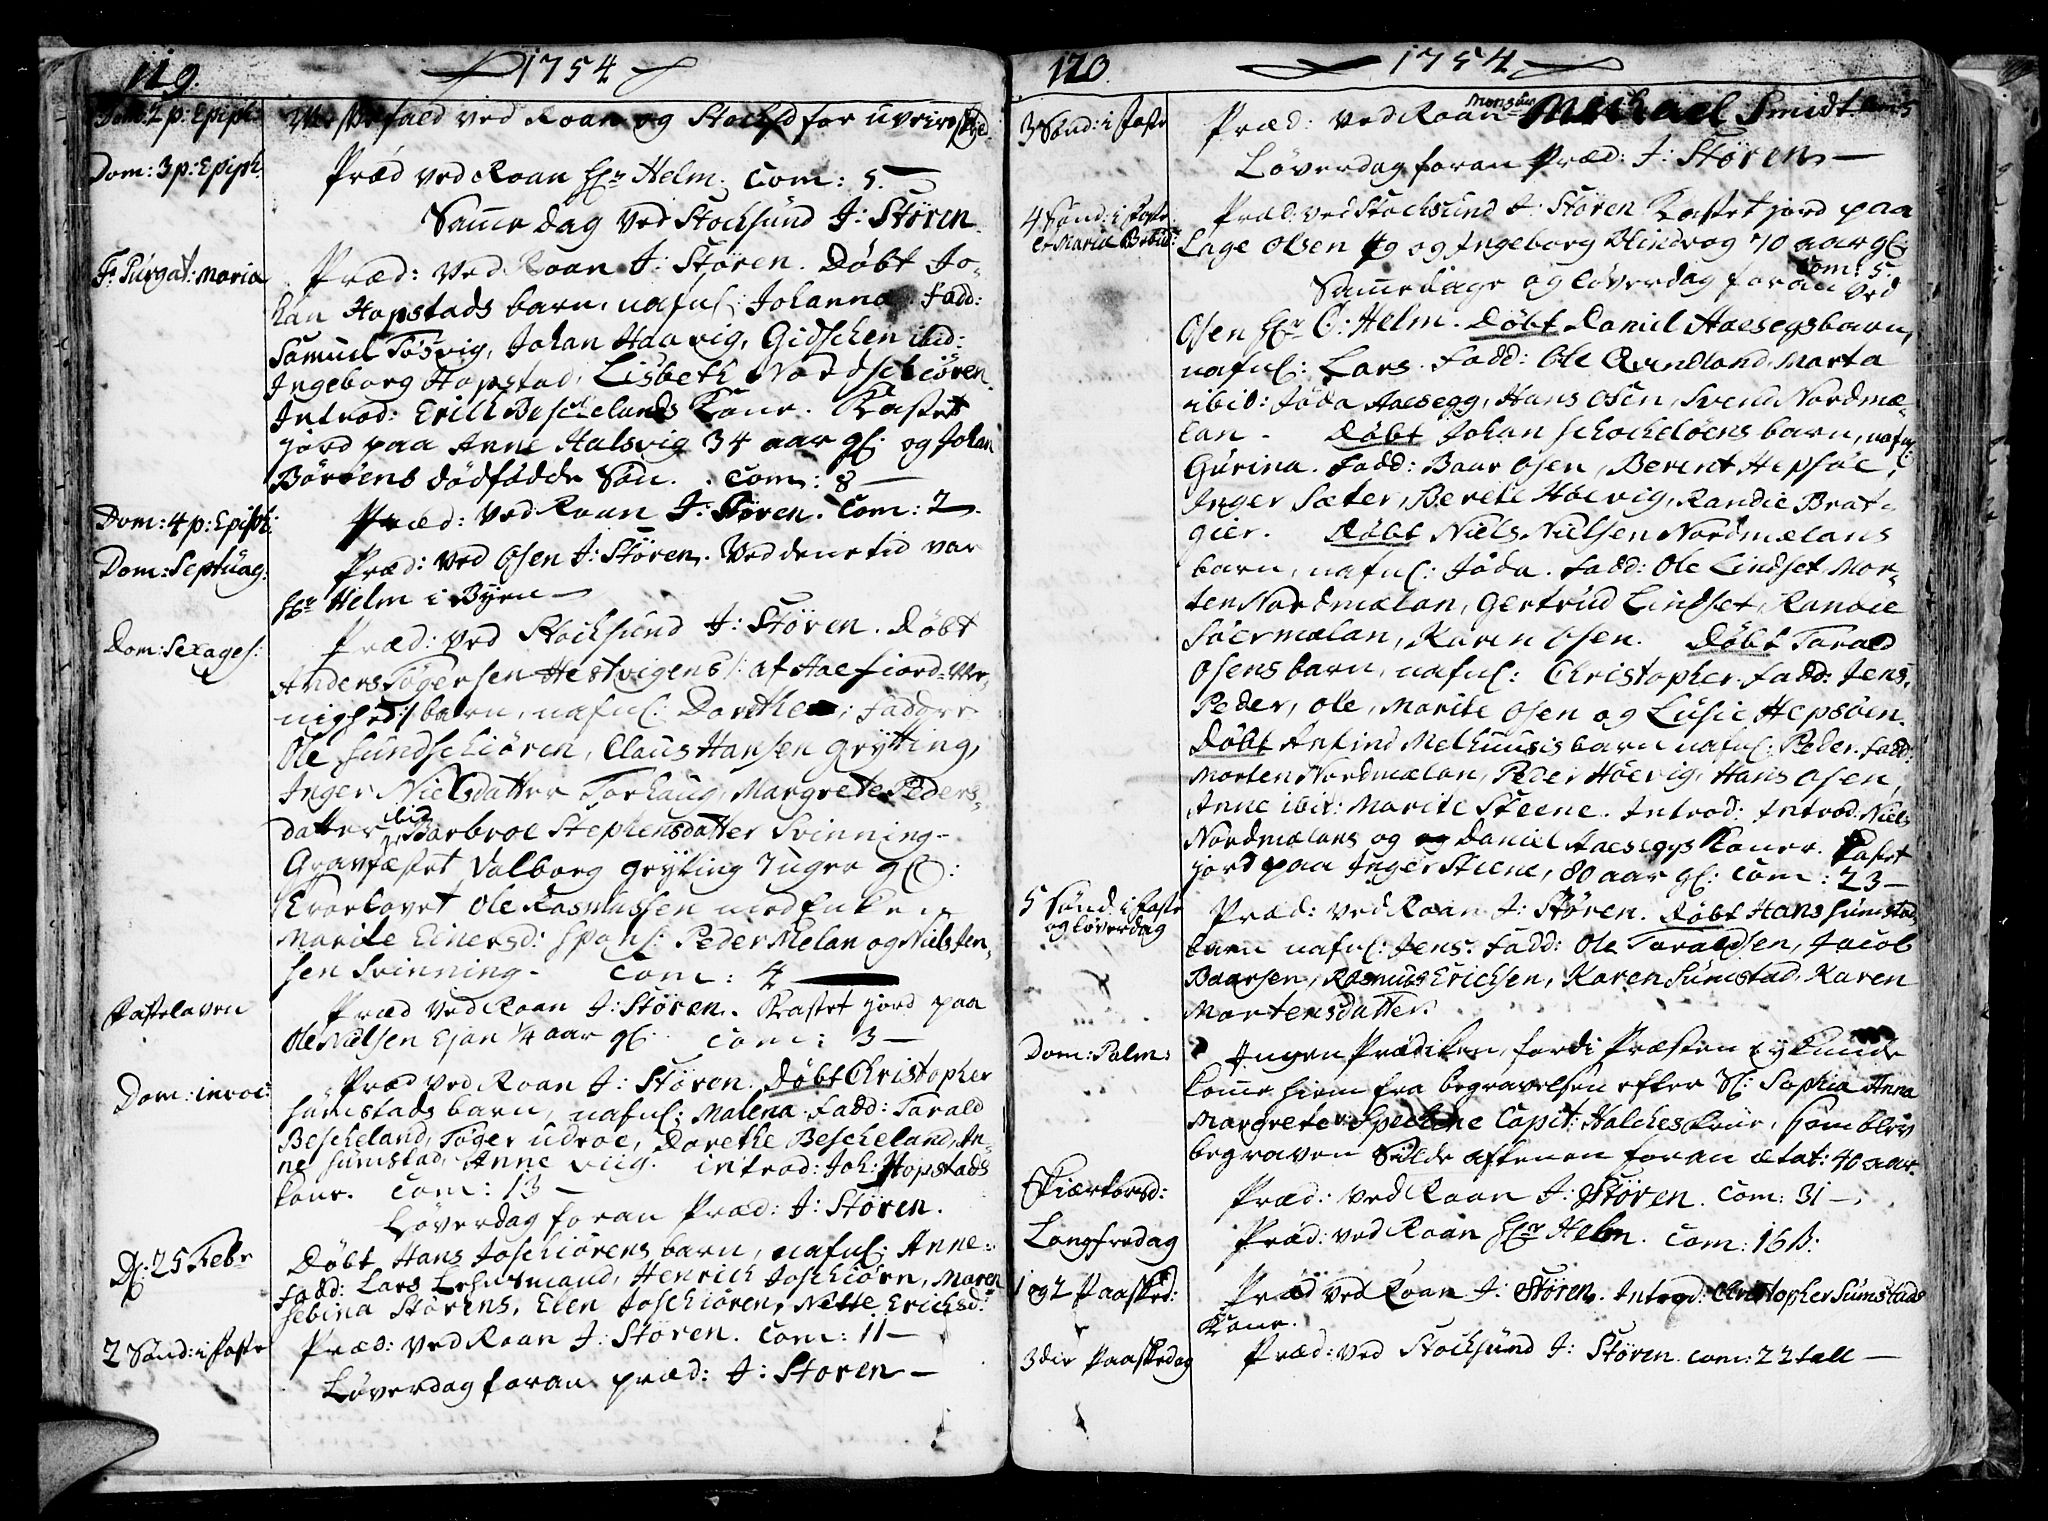 119.
1754
Dom: 2 p: Epiph: Messefald ved Roan og Stochsd for uveirs skyld.
Dom: 3 p: Epiph. Præd ved Roan Hr Helm. Com: 5. —
Samme dag ved Stochsund J: Stören.
F: Purgat: Mariæ Præd: ved Roan J: Stören. Döbt Jo-
han Hopstads barn, nafnl: Johanna. Fadd:
Samuel Tösvig, Johan Haavig, Gidschen ibid:
Ingeborg Hopstad, Lisbeth Nordschiören.
Introd: Erich Beschelands Kone. Kastet
jord paa Anne Halsvig 34 aar gl. og Johan
Böröens dödfödde Sön. Com: 8 —
Dom: 4 p: Epiph: Præd: ved Roan J: Stören. Com: 2 —
Dom: Septuag: Præd: ved Osen J: Stören. Ved denne tid var
Hr Helm i Byen —
Dom: Sexages: Præd: ved Stochsund J: Stören. Döbt
Anders Tögersen Hestvigens /: af Aaefiord-Me-
nighed :/ barn, nafnl: Dorthe; Faddre
Ole Sundschiören, Claus Hansen Grÿtting,
Inger Nielsdatter Torhaug, Margrete Peders-
datter ibid Barbroe Stephensdatter Svinning —
Gravfæstet Valborg Grÿting 7 uger gl:
Trorlovet Ole Rasmussen med Enken
Marite Einersd: Spons: Peder Melan og Niels Jen-
sen Svinning — Com: 4 —
Fastelaven Præd ved Roan J: Stören. Kastet jord paa
Ole Nielsen Ejan 1/4 aar gl. Com: 3 —
Dom: invoc: Præd ved Roan J: Stören. Döbt Christopher
Sumstads barn, nafnl: Malena. Fadd: Tarald
Bescheland, Töger Udroe, Dorethe Bescheland, An-
ne Sumstad, Anne Viig. introd: Joh: Hopstads
kone. Com: 13 —
Löverdag foran Præd: J: Stören.
D: 25 Febr Döbt Hans Joschiörens barn, nafnl: Anne.
Fadd: Lars Lehnsmand, Henrich Joschiörn, Maren
Sebina Störens, Elen Joschiören, Nitte Erichsd:
2 Sönd: i Faste Præd: ved Roan J: Stören. Com: 11 —
Löverdag foran præd: J: Stören —
120.
1754
3 Sönd: i Faste Præd: ved Roan Monsieur Michael Smidt. Com: 5
Löverdag foran Præd: J: Stören —
4 Sönd: i Faste Præd: ved Stochsund J: Stören Kastet jord paa
et Maria Bebud: Lage Olsen og Ingeborg Hindrog 70 aar gl:
Com: 5.
Samme dage og löverdag foran ved
Osen Hr C: Helm. Döbt Daniel Aaesegs barn,
nafnl: Lars. Fadd: Ole Rundland Marta
ibid: Jöda Aaesegg, Hans Osen, Svend Nordmæ-
lan. Döbt Johan Schochelöens barn, nafnl:
Gurina. Fadd: Baar Osen, Berent Hepsöe,
Inger Sæter, Berete Höevig, Randie Brat-
gier. Döbt Niels Nielsen Nordmælans
barn, nafnl: Jöda. Fadd: Ole Lindset, Mor-
ten Nordmælan, Gertrud Lindset, Randie
Söermælan, Karen Osen. Döbt Tarald
Osens barn, nafnl: Christopher. Fadd: Jens,
Peder, Ole, Marite Osen og Lusie Hepsöen.
Döbt Anfind Melhuusis barn nafnl: Peder. Fadd:
Morten Nordmælan, Peder Höevig, Hans Osen,
Anne ibid: Marite Steene. Introd: Introd: Niels
Nordmælans og og Daniel Aaeseggs Koner. Kastet
jord paa Inger Steene, 80 aar gl: Com: 23 —
5 Sönd: i Faste Præd: ved Roan J: Stören. Döbt Hans Sumstad
og löverdag barn nafnl: Jens. Fadd: Ole Taraldsen, Jacob
Baarsen, Rasmus Erichsen, Karen Sumstad, Karen
Mortensdatter.
Dom: Palm: Ingen Prædiken, fordi Præsten ey kunde
komme hiem fra begravelsen efter Sl: Sophia Anna
Margrete Capit: Halches kone, som blev
begraven Silde aftenen foran ætat: 40 aar.
Skiærtorsd: Præd: ved Roan J: Stören. Com: 31 —
Langfredag Præd: ved Roan Hr Helm. Com: 16 ß:
1 og 2 Paasked: Præd ved Roan J: Stören. Introd: Christopher Sumstads
Kone.
3die Paaskedag Præd: ved Stochsund J: Stören. Com: 22 tall —